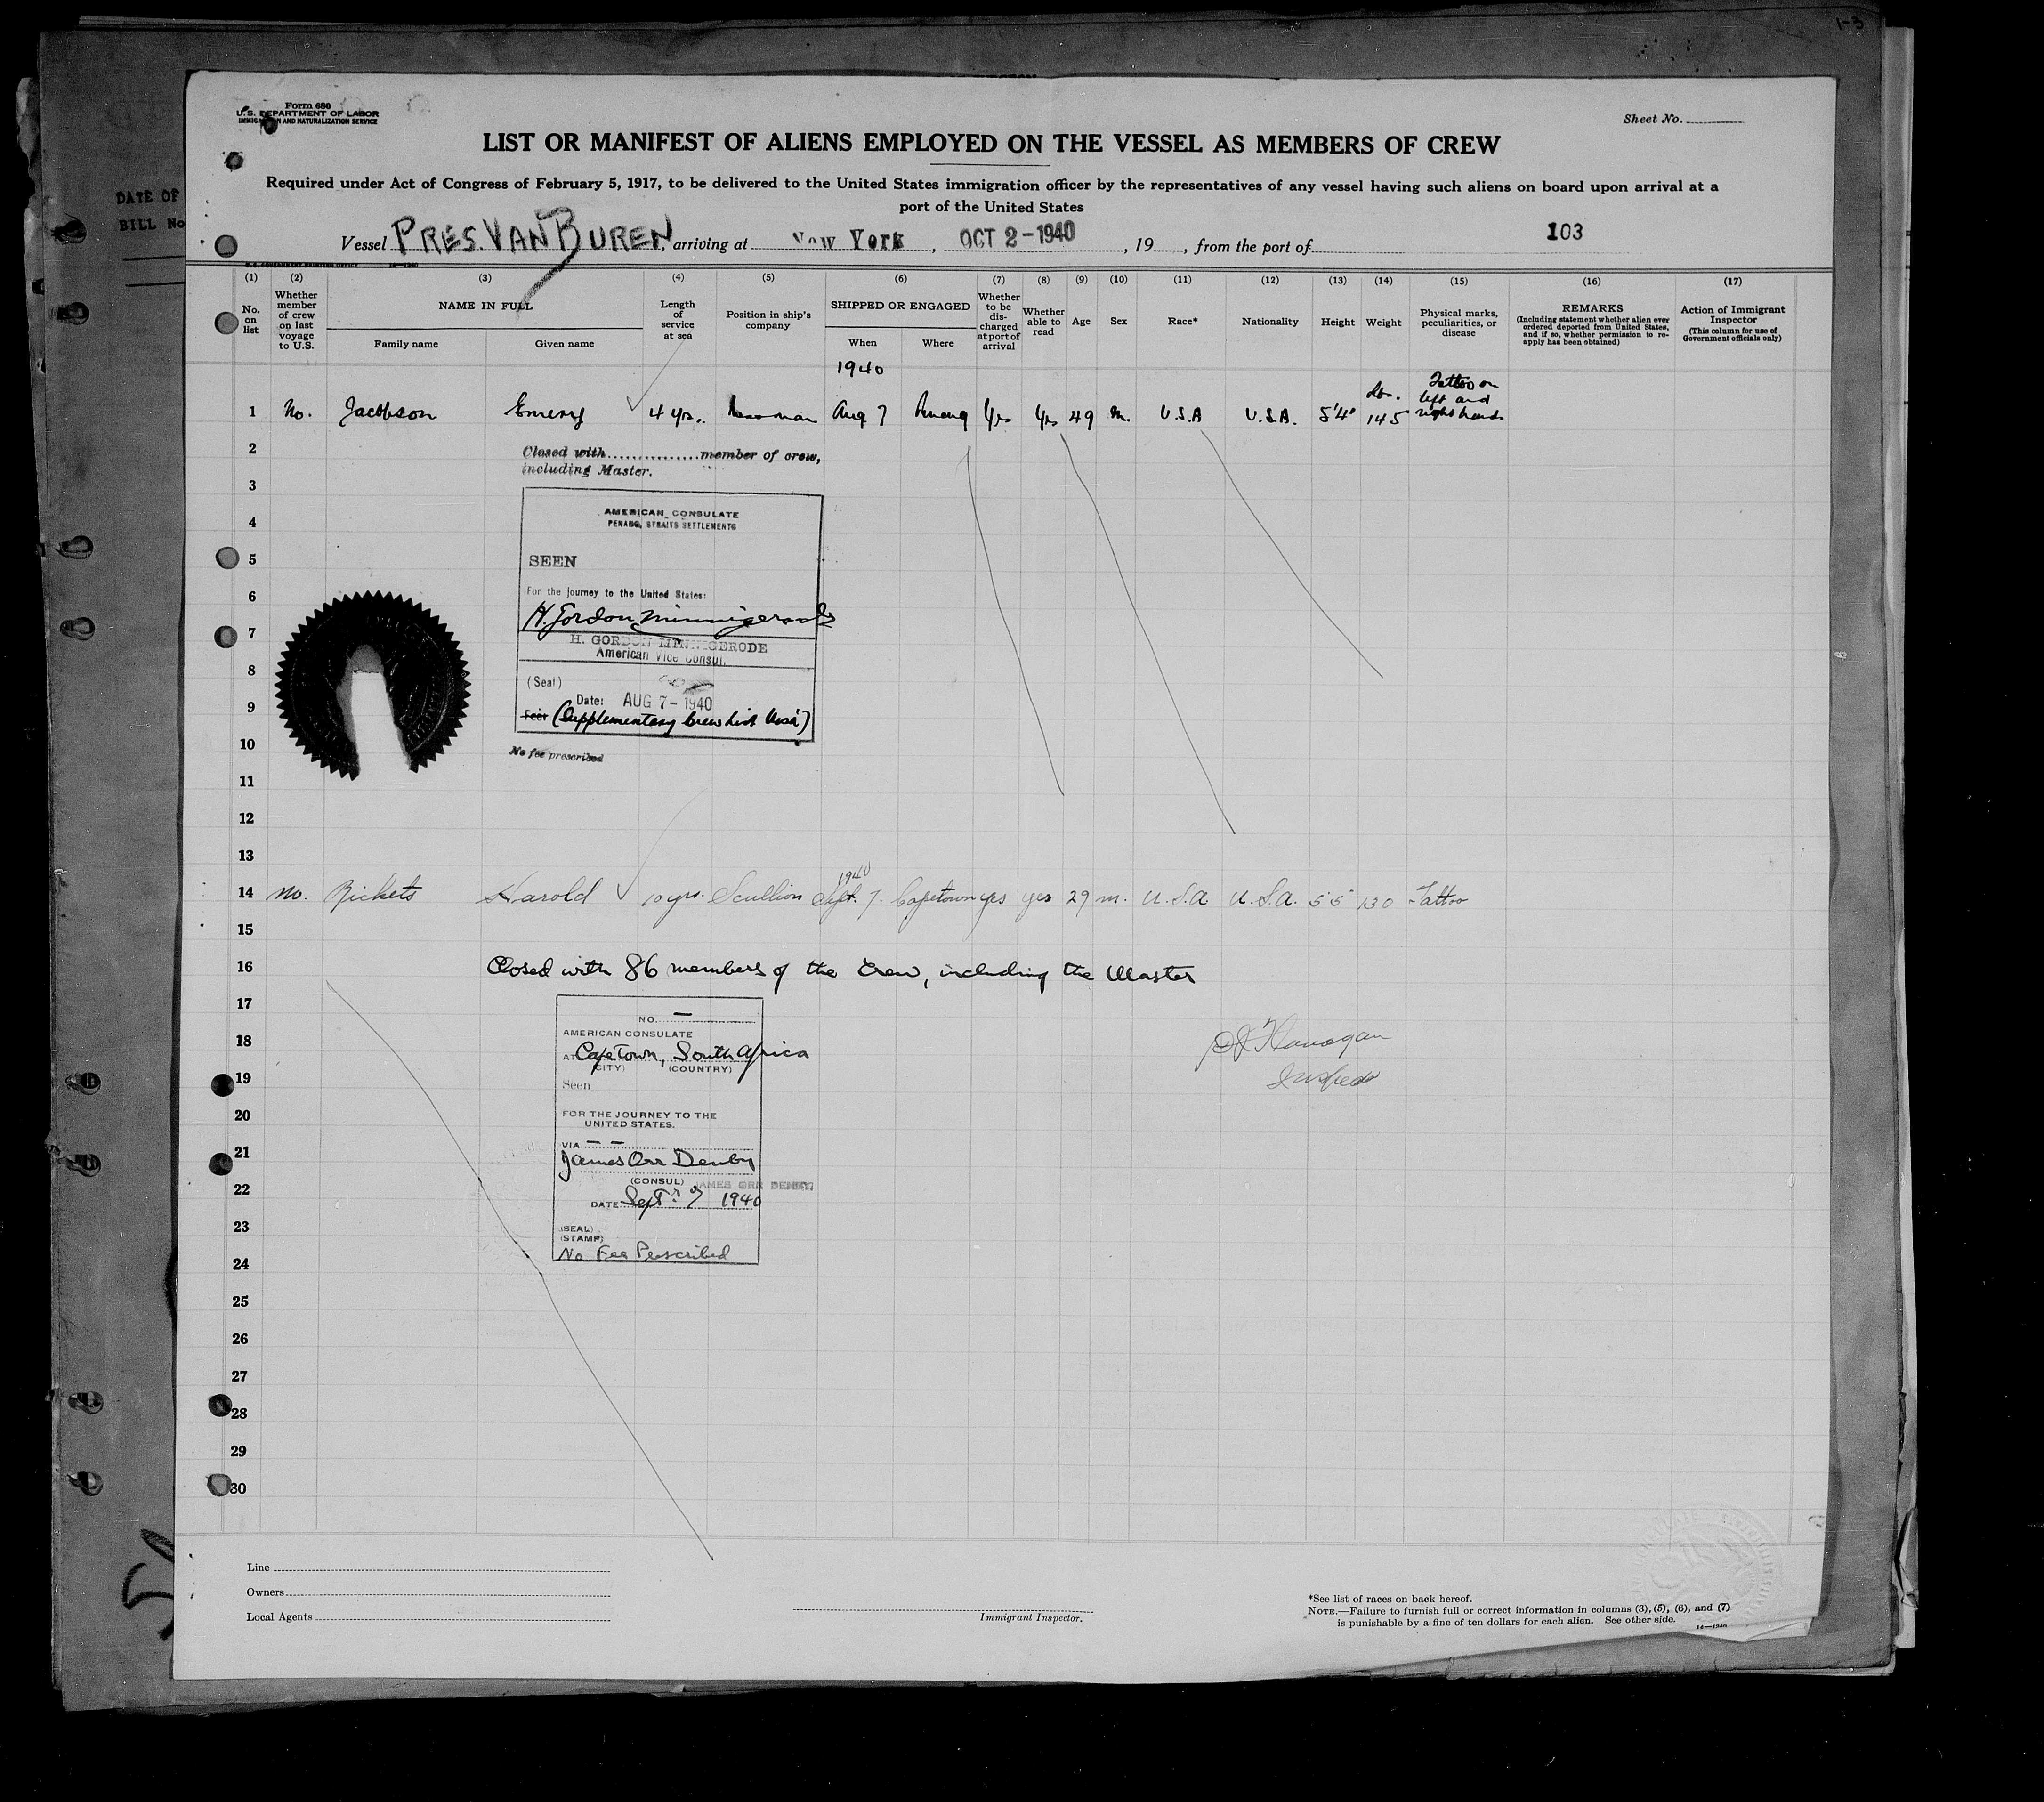 1-3
DATE OF
BILL No
Form 680
U.S. DEPARTMENT OF LABOR
IMMIGRATION AND NATURALIZATION SERVICE
Sheet No.
LIST OR MANIFEST OF ALIENS EMPLOYED ON THE VESSEL AS MEMBERS OF CREW
Required under Act of Congress of February 5, 1917, to be delivered to the United States immigration officer by the representatives of any vessel having such aliens on board upon arrival at a
port of the United States
Vessel PRES. VAN BUREN, arriving at New York, OCT 2-1940, 19, from the port of 103
(1) (2) (3) (4) (5) (6) (7) (8) (9) (10) (11) (12) (13) (14) (15) (16) (17)
No. on list
Whether member of crew on last voyage to U.S.
NAME IN FULL
Family name
Given name
Length of service at sea
Position in ship's company
SHIPPED OR ENGAGED
When
Where
Whether to be discharged at port of arrival
Whether able to read
Age
Sex
Race*
Nationality
Height
Weight
Physical marks, peculiarities, or disease
REMARKS
(Including statement whether alien ever ordered deported from United States, and if so, whether permission to reapply has been obtained)
Action of Immigrant Inspector
(This column for use of Government officials only)
1940
1 No. Jacobson Emery 4 yrs. Aug 7 Penang Yes Yes 49 m. U.S.A U.S.A. 5'4" lbs. 145 Tattoo on left and right hands
2
Closed with member of crew,
including Master.
3
4
AMERICAN CONSULATE
PENANG, STRAITS SETTLEMENTS
5
SEEN
6
For the journey to the United States:
H. Gordon Minnigerode
7
H. GORDON MINNIGERODE
American Vice Consul.
8
(Seal)
9
Date: AUG 7-1940
Fee: (Supplementary Crew List Visa)
10
No fee prescribed
11
12
13
14 No. Rickets Harold 10 yrs. Scullion 1940 Sept. 7. Capetown yes yes 29 m. U.S.A U.S.A. 5'5 130 Tattoo
15
16 Closed with 86 members of the Crew, including the Master
17
NO. —
AMERICAN CONSULATE
18
AT Cape Town, South Africa
(CITY) (COUNTRY)
19
Seen
20
FOR THE JOURNEY TO THE
UNITED STATES.
21
VIA — —
James Orr Denby
22
(CONSUL) JAMES ORR DENBY
DATE Sept. 7 1940
23
(SEAL)
(STAMP)
No Fee Prescribed
24
25
26
27
28
29
30
Flanagan
Inspector
Line
Owners
Local Agents
Immigrant Inspector.
*See list of races on back hereof.
NOTE.—Failure to furnish full or correct information in columns (3), (5), (6), and (7)
is punishable by a fine of ten dollars for each alien. See other side.
14—1240